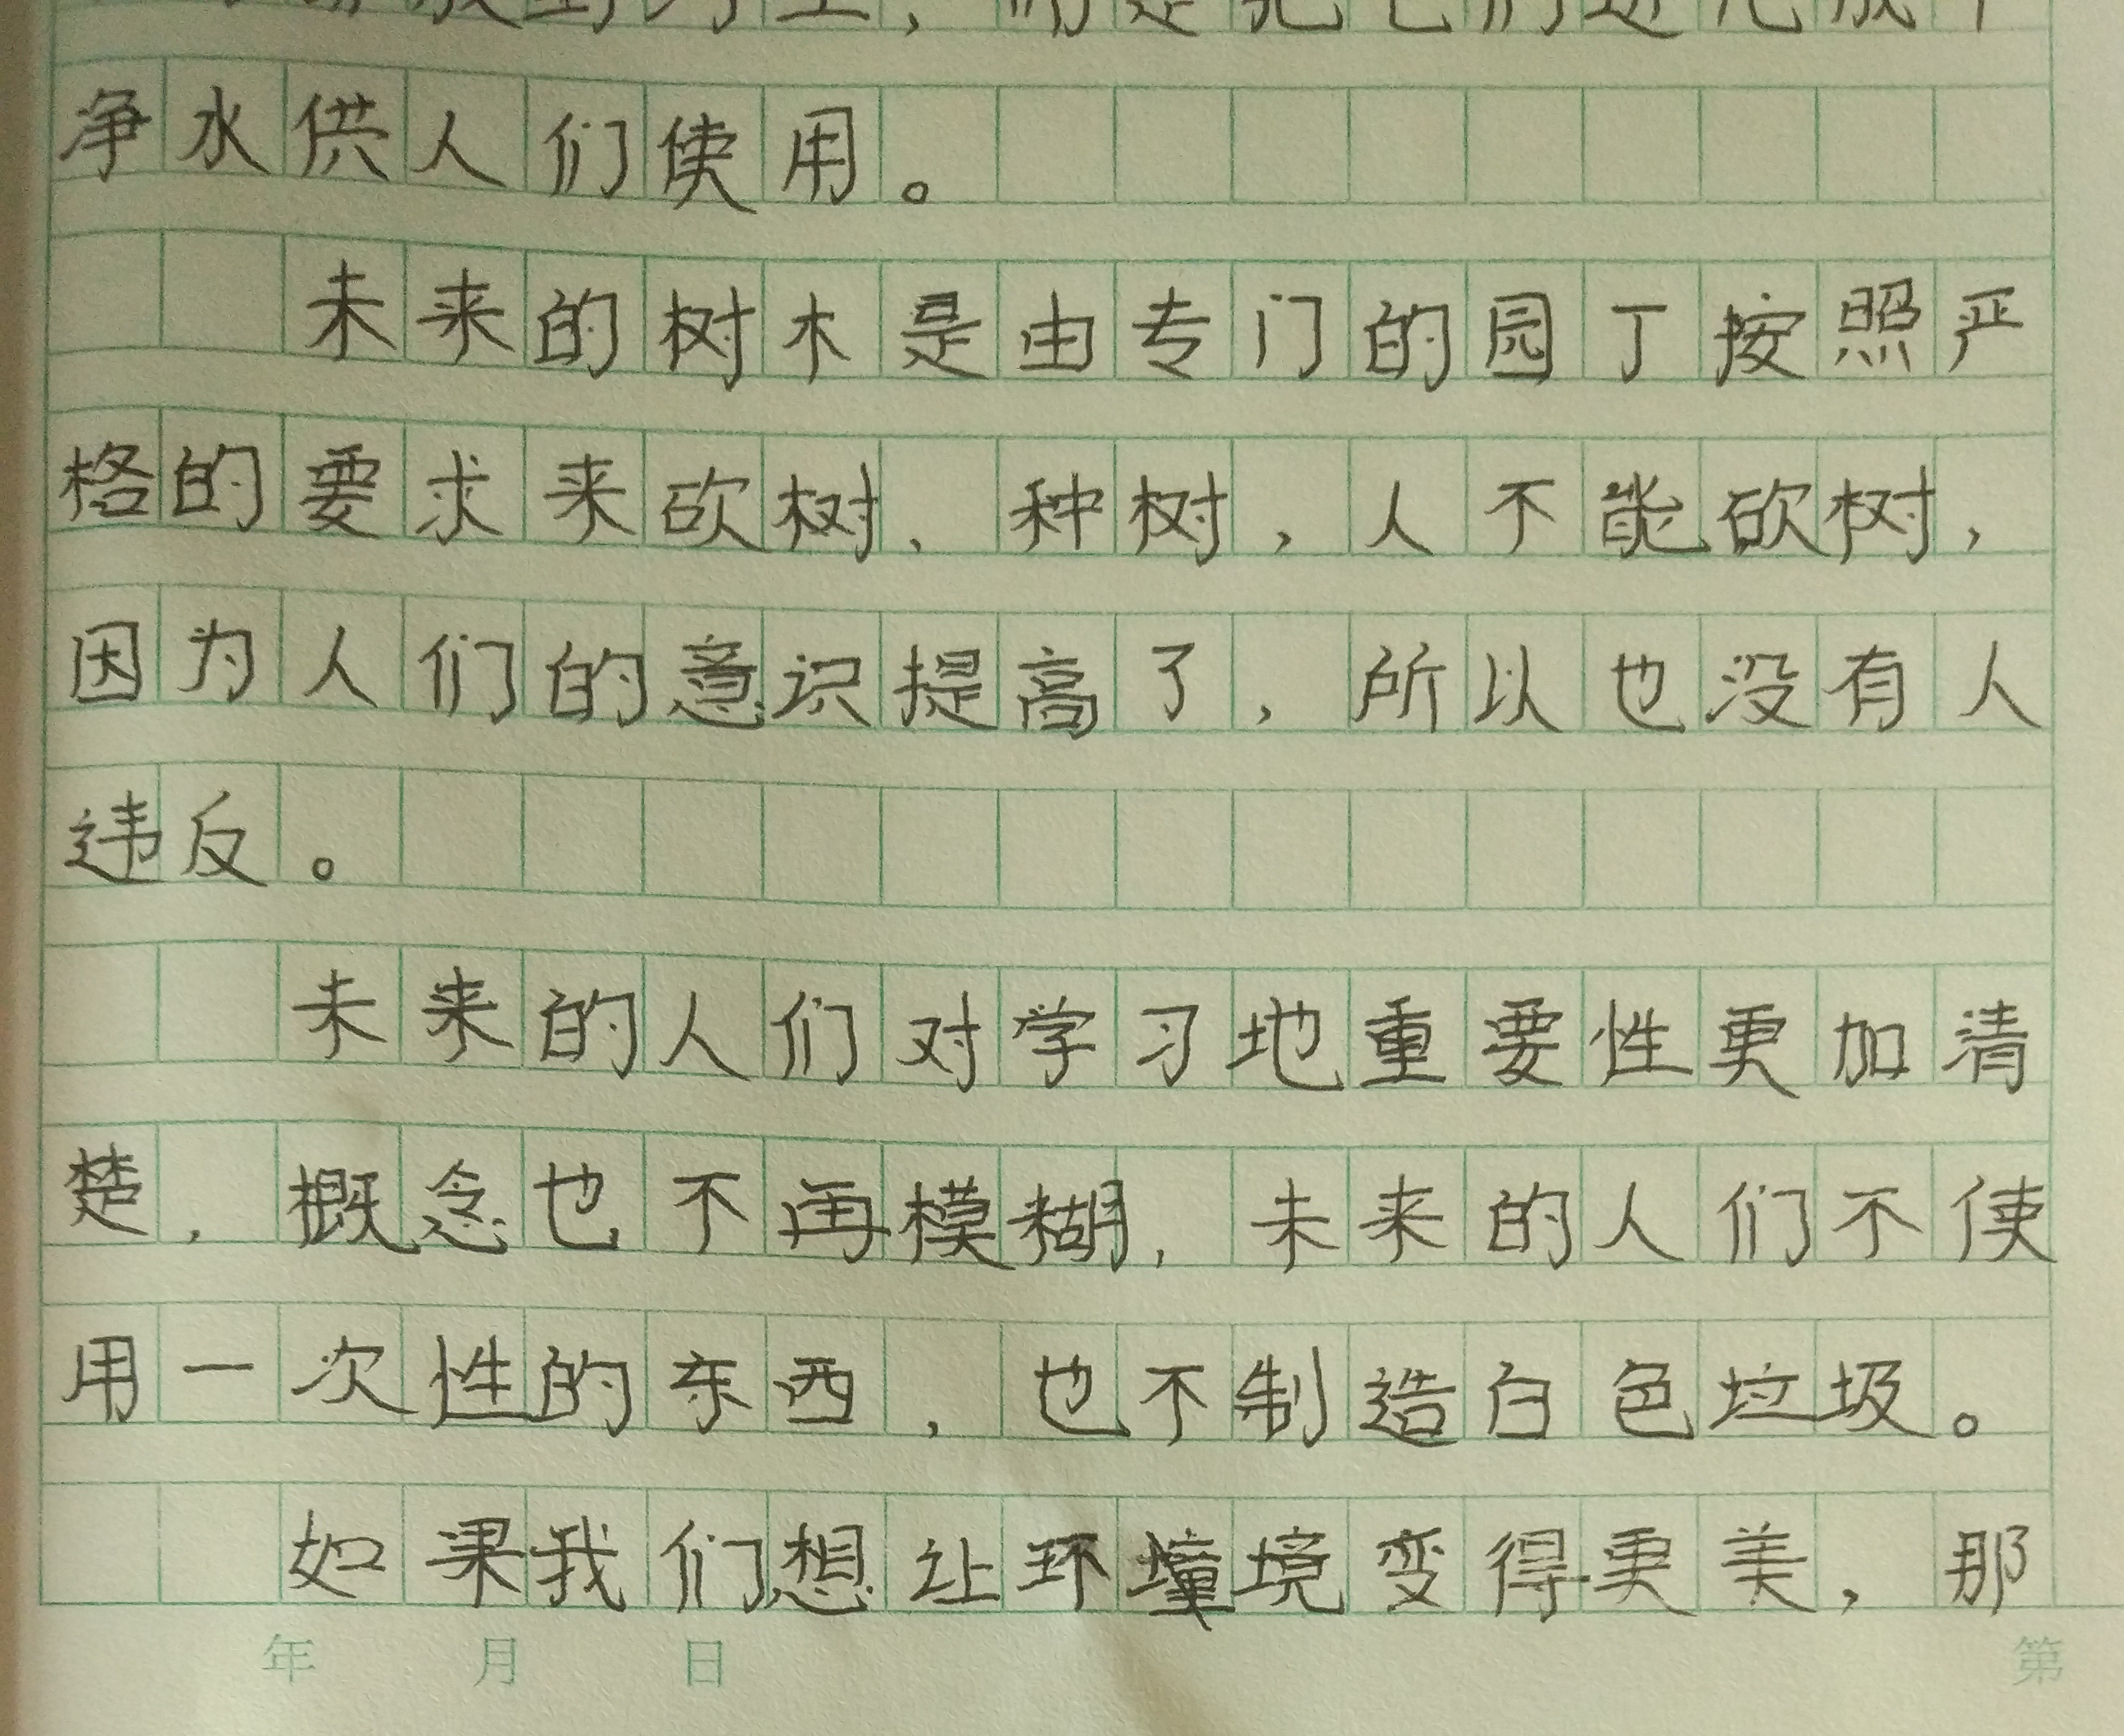 放到河里，而是把它们进化成干
净水供人们使用。
未来的树木是由专门的园丁按照严
格的要求来砍树、种树，人不能砍树，
因为人们的意识提高了，所以也没有人
违反。
未来的人们对学习地重要性更加清
楚，概念也不再模糊，未来的人们不使
用一次性的东西，也不制造白色垃圾。
如果我们想让环境变得更美，那
年 月 日 第